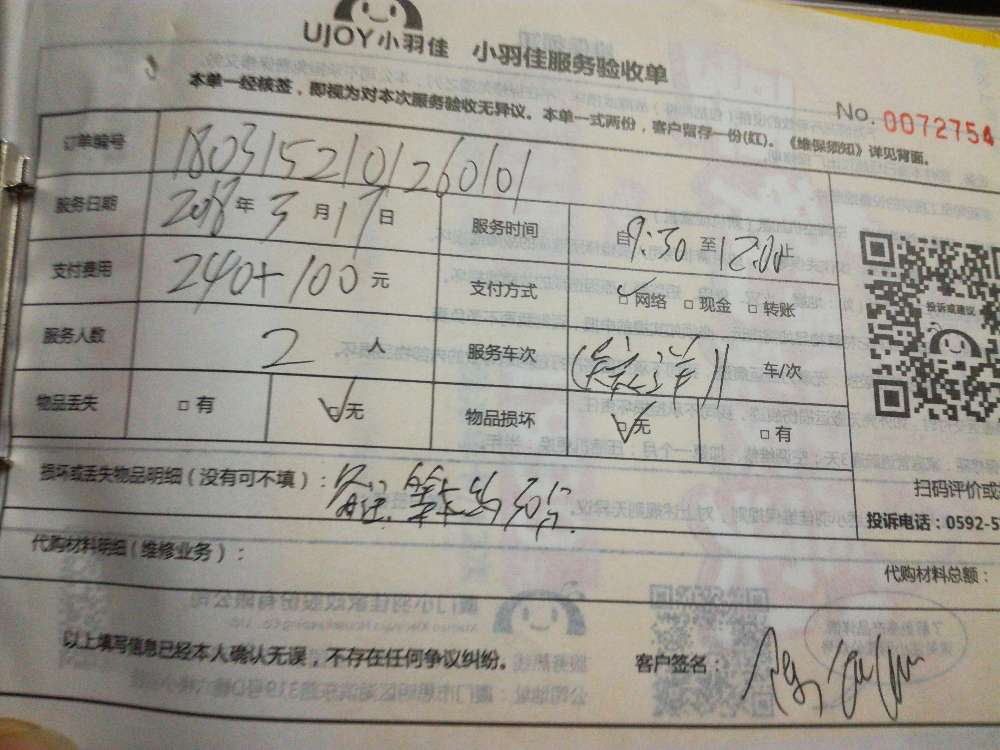 UJOY小羽佳 小羽佳服务验收单
本单一经核签，即视为对本次服务验收无异议。本单一式两份，客户留存一份(红)。《维保须知》详见背面。
No. 0072754
订单编号 1803152101260101
服务日期 2018年3月17日 服务时间 自9:30至12:00止
支付费用 240+100元 支付方式 □网络 □现金 □转账
服务人数 2人 服务车次 车/次
物品丢失 □有 □无 物品损坏 □无 □有
投诉或建议
损坏或丢失物品明细(没有可不填)：
扫码评价或
投诉电话：0592-5
代购材料明细(维修业务)：
代购材料总额：
以上填写信息已经本人确认无误，不存在任何争议纠纷。
客户签名：